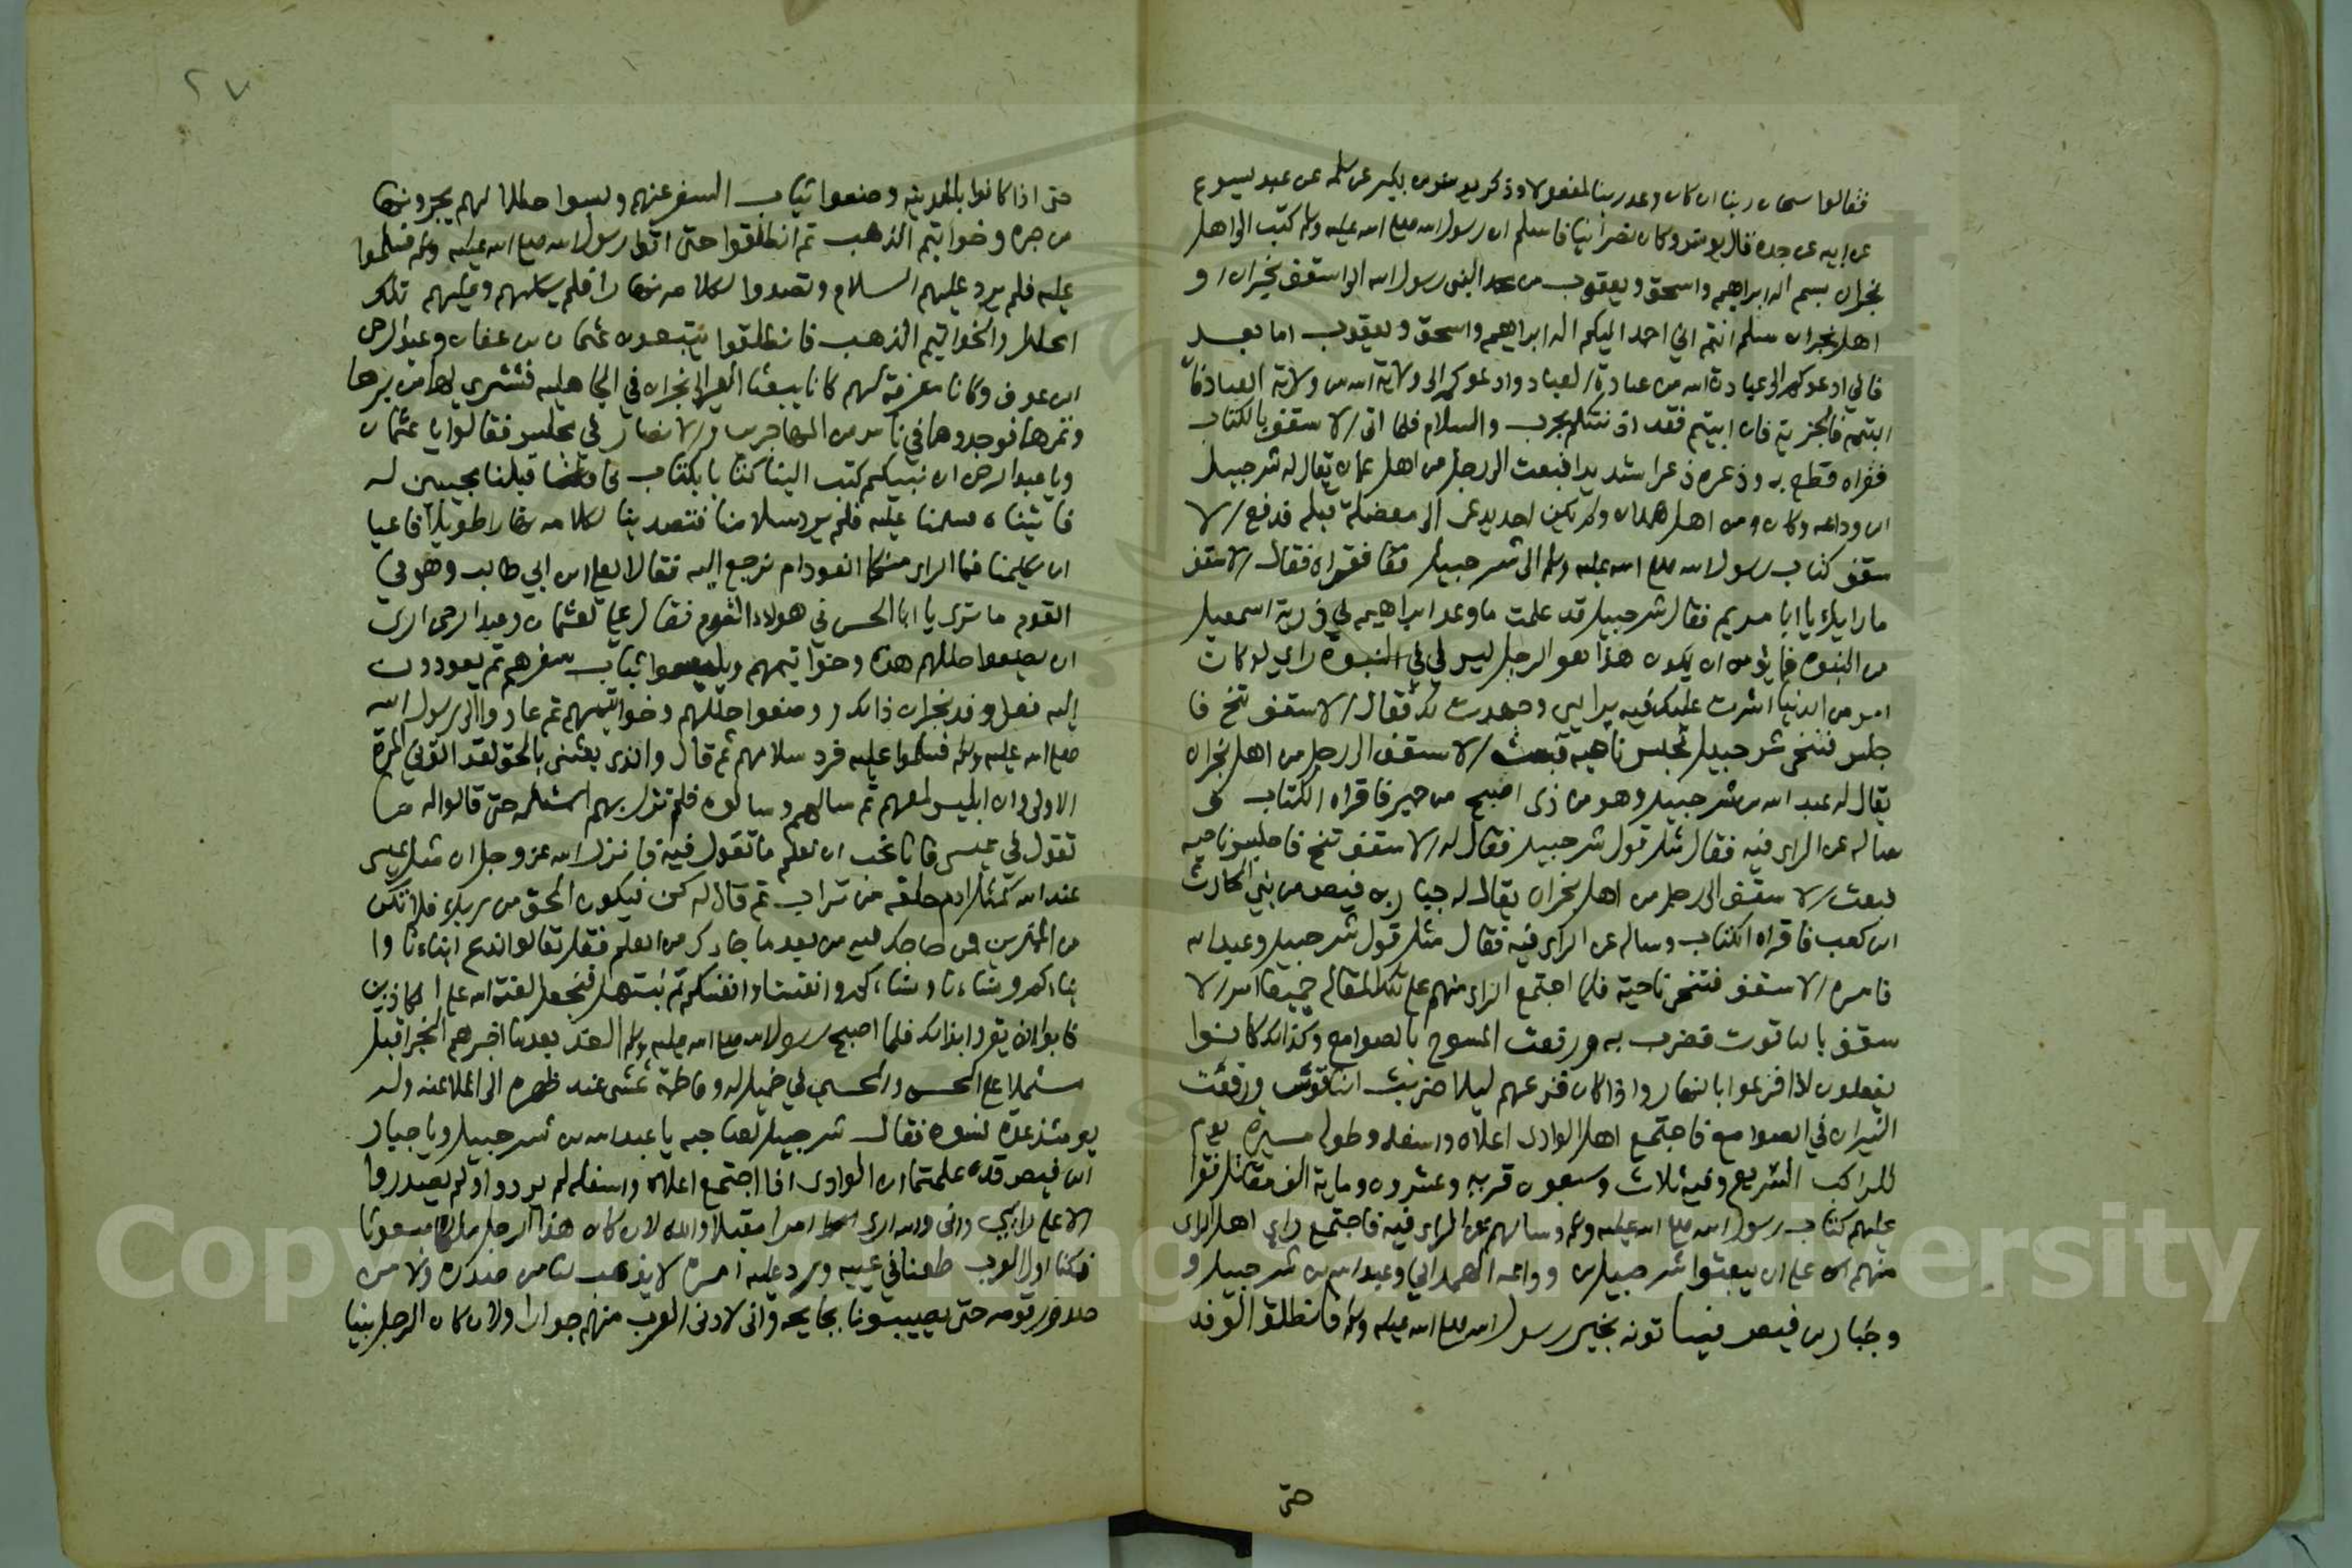 فقالوا سبحان ربنا ان كان وعد ربنا لمفعولا وذكر يونس بن بكير عن سلمه عن عبد يسوع
عن ابيه عن جده قال يونس وكان نصرانيا فاسلم ان رسول الله صلى الله عليه وسلم كتب الى اهل
نجران بسم اله ابراهيم واسحق ويعقوب من محمد النبى رسول الله الى اسقف نجران و
اهل نجران سلم انتم اني احمد اليكم اله ابراهيم واسحق ويعقوب اما بعد
فاني ادعوكم الى عبادة الله من عبادة العباد وادعوكم الى ولاية الله من ولاية العباد فان
ابيتم فالجزية فان ابيتم فقد اذنتكم بحرب والسلام فلما اتى الاسقف بالكتاب
فقراه فظع به وذعره ذعرا شديدا فبعث الى رجل من اهل نجران يقال له شرحبيل
ابن وداعه وكان من اهل همدان ولم يكن احد يدعى الى معضلة قبله فدفع الا
سقف كتاب رسول الله صلى الله عليه وسلم الى شرحبيل فقراه فقال الاسقف
ما رايك يا ابا مريم فقال شرحبيل قد علمت ما وعد ابراهيم في ذرية اسمعيل
من النبوه فما يؤمن ان يكون هذا هو الرجل ليس لي في النبوه راي لو كان
امر من الدنيا اشرت عليك فيه براي وجهدت لك فقال الاسقف تنح فا
جلس فتنحى شرحبيل فجلس ناحيه فبعث الاسقف الى رجل من اهل نجران
يقال له عبد الله بن شرحبيل وهو من ذى اصبح من حمير فاقراه الكتاب و
ساله عن الراى فيه فقال مثل قول شرحبيل فقال له الاسقف تنح فاجلس ناحيه
فبعث الاسقف الى رجل من اهل نجران يقال له جبار بن فيص من بني الحارث
ابن كعب فاقراه الكتاب وساله عن الراى فيه فقال مثل قول شرحبيل وعبد الله
فامره الاسقف فتنحى ناحية فلما اجتمع الراى منهم على تلك المقاله جميعا امر الا
سقف بالناقوس فضرب به ورفعت المسوح بالصوامع وكذلك كانوا
يفعلون اذا فزعوا بالنهار واذا كان فزعهم ليلا ضرب الناقوس ورفعت
النيران في الصوامع فاجتمع اهل الوادى اعلاه واسفله وطوله مسيرة يوم
للراكب السريع وفيه ثلاث وسبعون قريه وعشرون ومايه الف مقاتل فقرا
عليهم كتاب رسول الله صلى الله عليه وسلم وسالهم عن الراى فيه فاجتمع راي اهل الراى
منهم على ان يبعثوا شرحبيل بن وداعه الهمداني وعبد الله بن شرحبيل و
وجبار بن فيص فياتونه بخبر رسول الله صلى الله عليه وسلم فانطلق الوفد
حتى
٢٧
حتى اذا كانوا بالمدينه وضعوا ثياب السفر عنهم ولبسوا حللا لهم يجرونها
من حبره وخواتيم الذهب ثم انطلقوا حتى اتوا رسول الله صلى الله عليه وسلم فسلموا
عليه فلم يرد عليهم السلام وتصدوا لكلامه نهارا فلم يكلمهم وعليهم تلك
الحلل والخواتيم الذهب فانطلقوا يتبعون عثمان بن عفان وعبد الرحمن
ابن عوف وكانا معرفة لهم كانا يبعثا العير الى نجران في الجاهليه فتشترى لهما من برها
وثمرها فوجدوهما في ناس من المهاجرين والانصار في مجلس فقالوا يا عثمان
ويا عبد الرحمن ان نبيكم كتب الينا كتابا بكتاب فاقبلنا مجيبين له
فاتيناه وسلمنا عليه فلم يرد سلامنا فتصدينا لكلامه نهارا طويلا فاعيانا
ان يكلمنا فما الراى منكما انعود ام نرجع اليه فقالا لعلى ابن ابي طالب وهو في
القوم ما ترى يا ابا الحسن في هولاء القوم فقال علي لعثمان وعبد الرحمن ارى
ان يضعوا حللهم هذه وخواتيمهم ويلبسوا ثياب سفرهم ثم يعودون
اليه ففعل وفد نجران ذلك ووضعوا حللهم وخواتيمهم ثم عادوا الى رسول الله
صلى الله عليه وسلم فسلموا عليه فرد سلامهم ثم قال والذى بعثنى بالحق لقد اتونى المرة
الاولى وان ابليس لمعهم ثم سالهم وسالوه فلم تزل بهم المسئله حتى قالوا له ما
تقول في عيسى فانا نحب ان نعلم ما تقول فيه فانزل الله عز وجل ان مثل عيسى
عند الله كمثل ادم خلقه من تراب ثم قال له كن فيكون الحق من ربك فلا تكن
من الممترين فمن حاجك فيه من بعد ما جاءك من العلم فقل تعالوا ندع ابناءنا وا
بناءكم ونساءنا ونساءكم وانفسنا وانفسكم ثم نبتهل فنجعل لعنة الله على الكاذبين
فابوا ان يقروا بذلك فلما اصبح رسول الله صلى الله عليه وسلم الغد بعد ما اخبرهم الخبر اقبل
مشتملا على الحسن والحسين في خميل له وفاطمة تمشى عند ظهره الى الملاعنه وله
يومئذ عدة نسوه فقال شرحبيل لصاحبيه يا عبد الله بن شرحبيل ويا جبار
ابن فيص قد علمتما ان الوادى اذا اجتمع اعلاه واسفله لم يردوا ولم يصدروا
الا على رايي وانى والله ارى امرا مقبلا والله لان كان هذا الرجل ملكا مبعوثا
فكنا اول العرب طعنا في عينيه ورد عليه امره لا يذهب لنا من صدره ولا من
صدور قومه حتى يصيبونا بجايحه وانى لادنى العرب منهم جوارا ولان كان الرجل نبيا